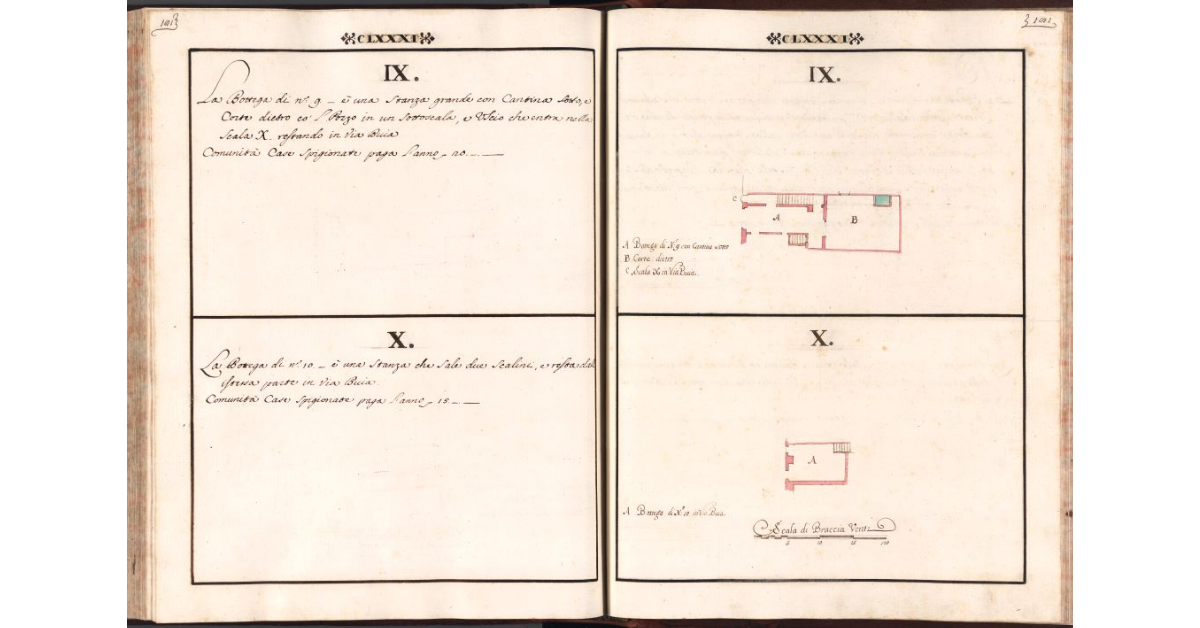 CLXXXI
IX.
La Bottega di n.º 9 _ è una Stanza grande con Cantina sotto, e
Corte dietro co' l Pozo in un sottoscala, e Uscio che entra nella
Scala X. restando in Via Buia
Comunità Case Spigionate paga l'anno _ 20. _ __
X.
La Bottega di n.º 10 _ è una Stanza che Sale due Scalini, e resta dall
istessa parte in Via Buia.
Comunità Case Spigionate paga l'anno _ 15 _ __
CLXXXI
IX.
C
A
B
A Bottega di N.º 9 con Cantina sotto
B Corte dietro
C Scala X. in Via Buia.
X.
A
A Bottega di N.º 10 in Via Buia.
Scala di Braccia Venti
5 10 15 20